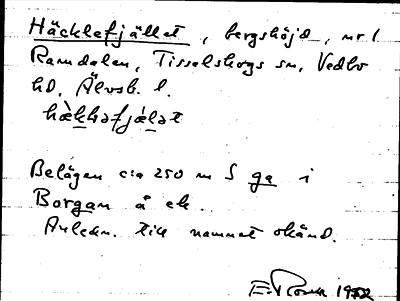 Häcklefjället, bergshöjd, nr 1
Ramdalen, Tisselskogs sn, Vedbo
hd, Älvsb. l.
hæ̀kləfjæ̀lət
Belägen c:a 250 m S ga i
Borgan å ek.
Anledn. till namnet okänd.
E. 1952